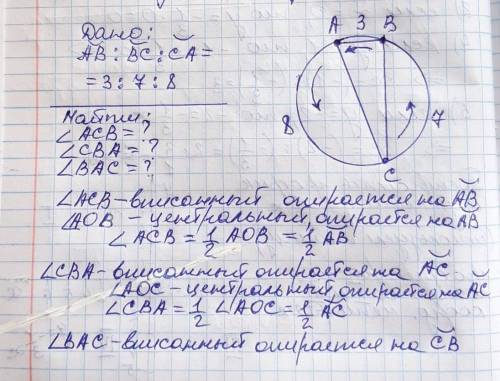 Дано:
AB : BC : CA =
= 3 : 7 : 8
A 3 B
8
7
C
Найти:
∠ACB = ?
∠CBA = ?
∠BAC = ?
∠ACB - вписанный опирается на AB
∠AOB - центральный, опирается на AB
∠ACB = 1/2 AOB = 1/2 AB
∠CBA - вписанный опирается на AC
∠AOC - центральный, опирается на AC
∠CBA = 1/2 ∠AOC = 1/2 AC
∠BAC - вписанный опирается на CB